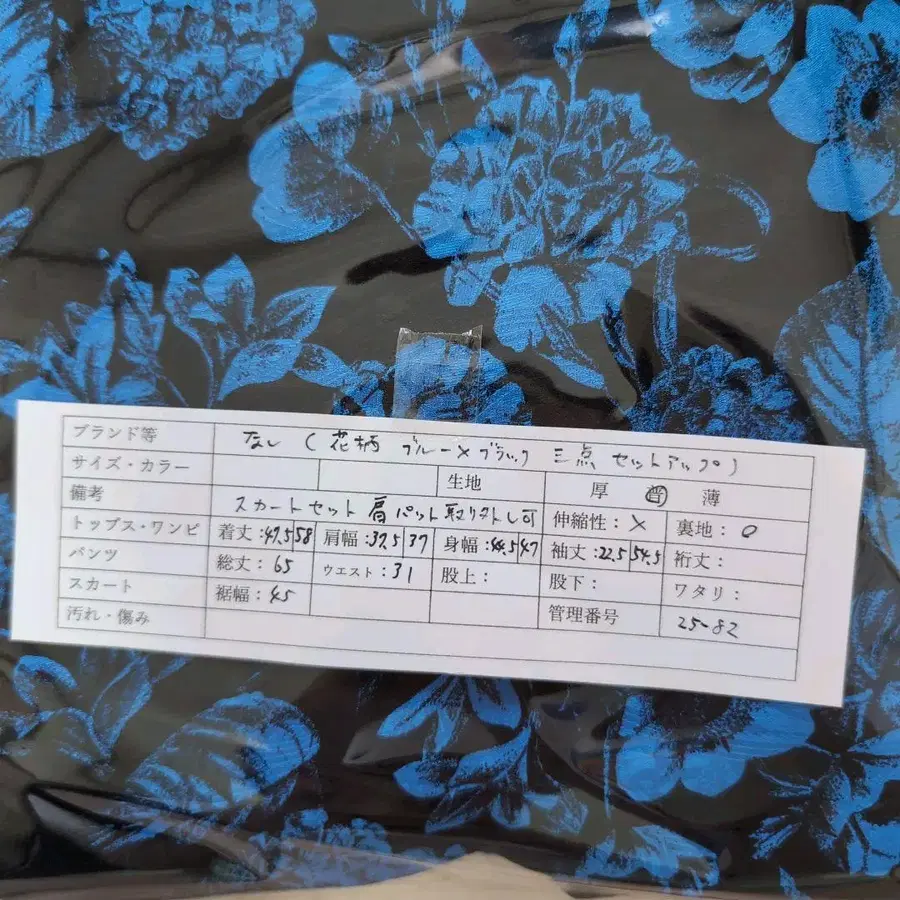 ブランド等 なし (花柄 ブルー×ブラック 三点 セットアップ)
サイズ・カラー 生地 厚 普 薄
備考 スカートセット 肩パット取り外し可 伸縮性:× 裏地:○
トップス・ワンピ 着丈:47.5|58 肩幅:37.5|37 身幅:44.5|47 袖丈:22.5|54.5 裄丈:
パンツ 総丈:65 ウエスト:31 股上: 股下: ワタリ:
スカート 裾幅:45 管理番号 25-82
汚れ・傷み